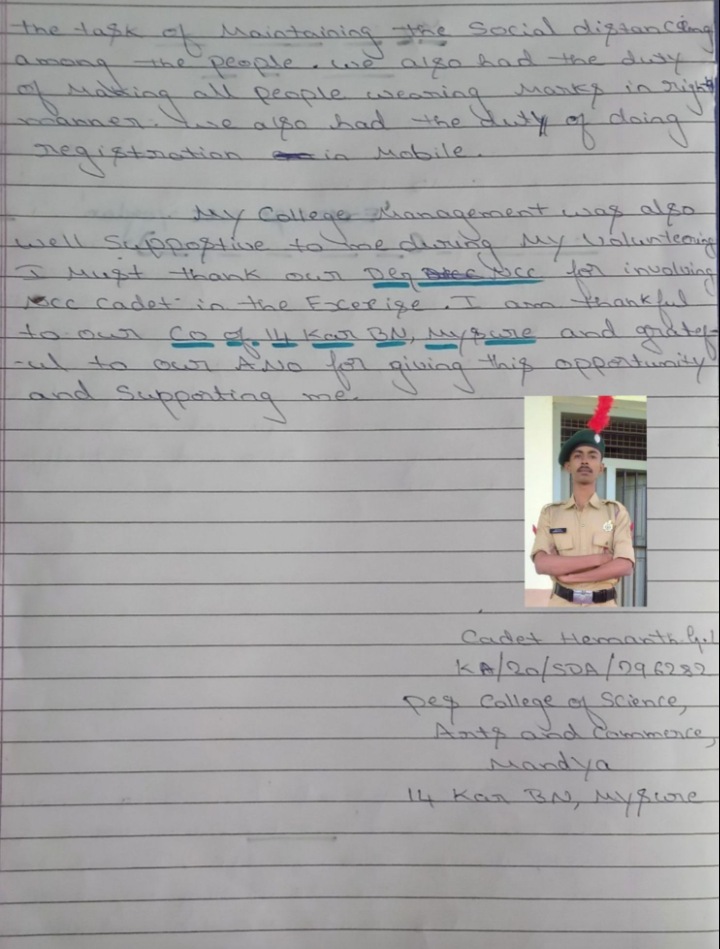 the task of Maintaining the Social distancing
among the people. we also had the duty
of Making all people wearing Marks in right
manner. We also had the duty of doing
registration in Mobile.
My College Management was also
well Suppostive to me during My Volunteering
I Must thank our NCC for involving
NCC Cadet in the Excerise. I am thankful
to our CO of 14 Kar BN, Mysure and gratef-
-ul to our ANO for giving this opportunity
and Supporting me.
Cadet Hemanth.
KA/20/SDA/296282
pes College of Science,
Arts and Commerce,
Mandya
14 Kar BN, Mysure